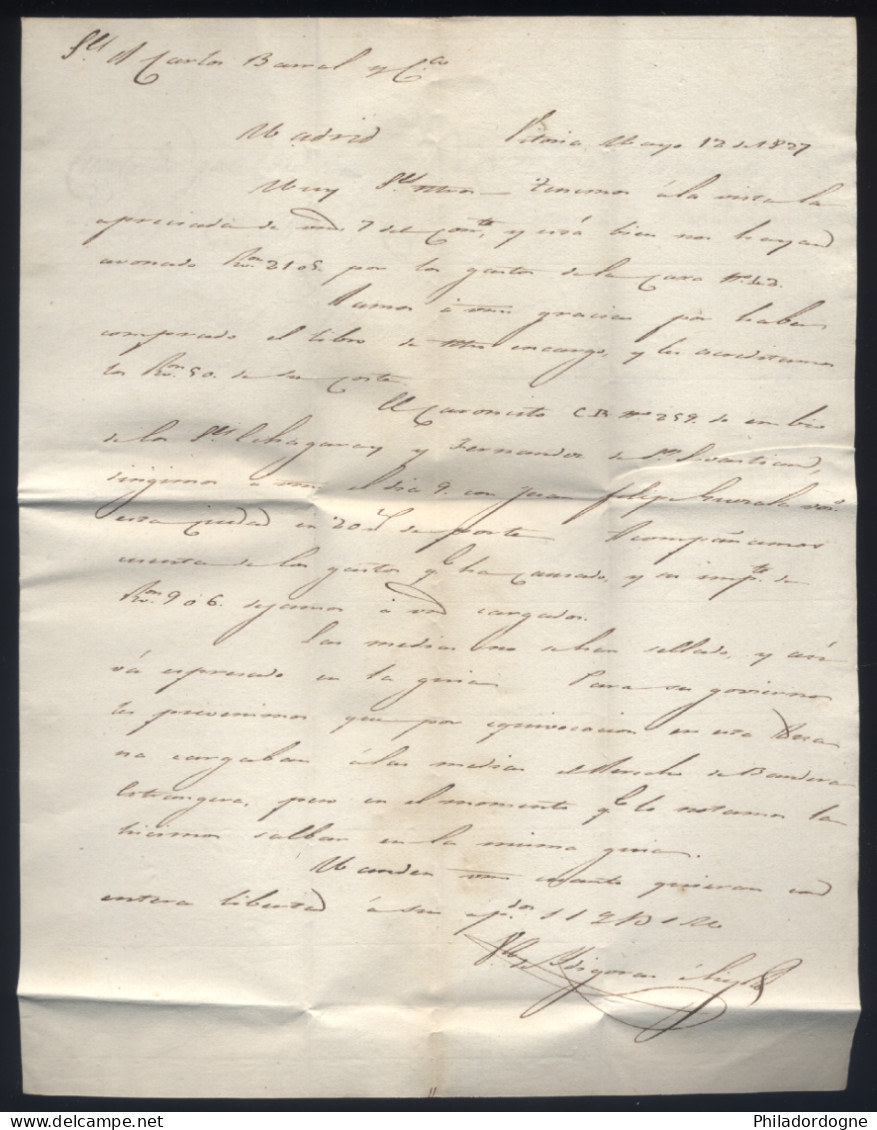 Sres A Carlos Barral y Ca
Madrid Vitoria Mayo 12 de 1827
Muy Sres ntros Tenemos á la vista la
apreciada de vms 7 del Corte, y está bien nos hayan
avonado Ron 21 05 por los gastos de la Caxa No de 2.
Damos á vms gracias por haber
comprado el libro de ntro encargo, y les acreditamos
los Ron 50. de su coste.
El Caxoncito C B No 259. de embio
de los Sres Echagaray y Fernandez de Sn Sevastian,
dirigimos á vms el dia 9. con Juan Felipe
esta ciudad en 20 rs de porte Acompañamos
cuenta de los gastos qe ha causado, y su impte de
Ron 9 06. dejamos á vms cargados.
Las medias no se han sellado, y asi
vá espresado en la guia Para su govierno
les prevenimos que por equivocacion en esta
na cargaban á las medias el derecho de Bandera
Estrangera, pero en el momento qe lo notamos la
hicimos salbar en la misma guia.
Manden vms cuanto quieran con
entera libertad á sus
Philadordogne